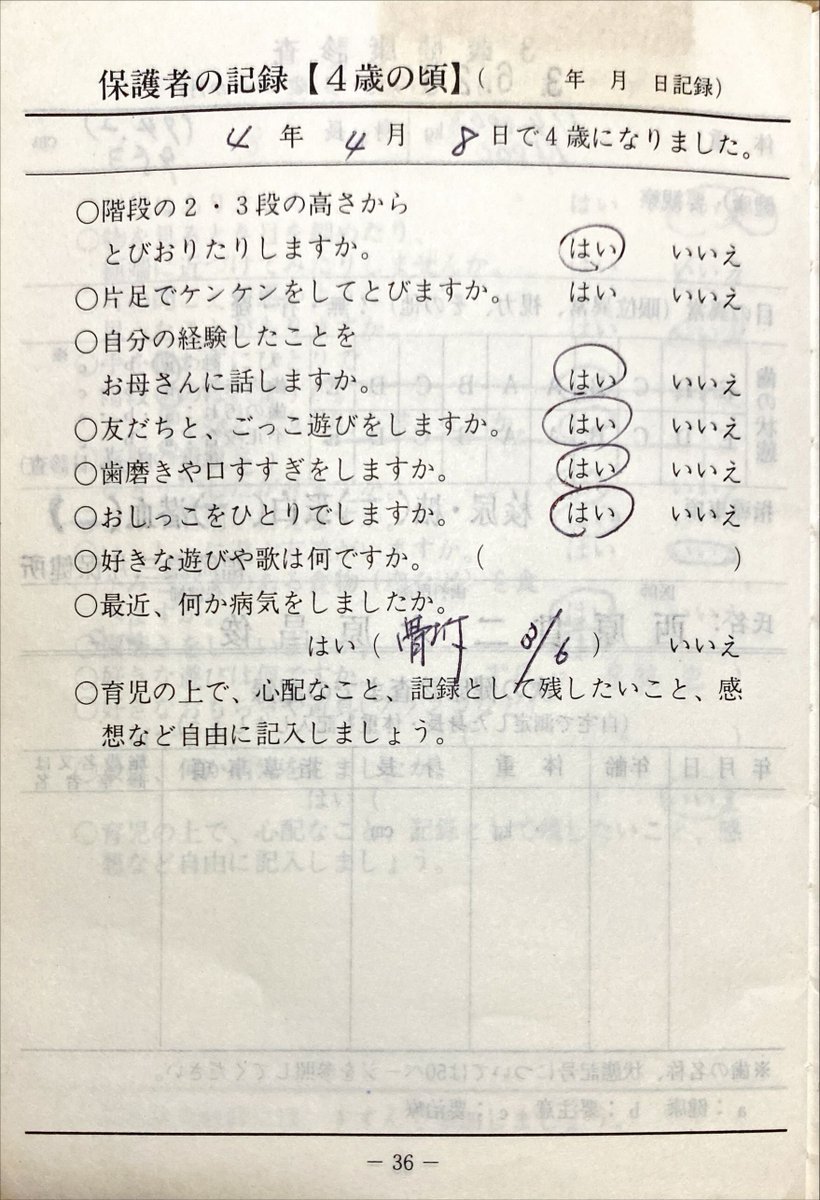 保護者の記録【4歳の頃】(　　年　月　日記録)
4年 4月 8日で4歳になりました。
○階段の2・3段の高さから
とびおりたりしますか。　はい　いいえ
○片足でケンケンをしてとびますか。　はい　いいえ
○自分の経験したことを
お母さんに話しますか。　はい　いいえ
○友だちと、ごっこ遊びをしますか。　はい　いいえ
○歯磨きや口すすぎをしますか。　はい　いいえ
○おしっこをひとりでしますか。　はい　いいえ
○好きな遊びや歌は何ですか。(　　　)
○最近、何か病気をしましたか。
はい(骨折 3/6)　いいえ
○育児の上で、心配なこと、記録として残したいこと、感
想など自由に記入しましょう。
− 36 −